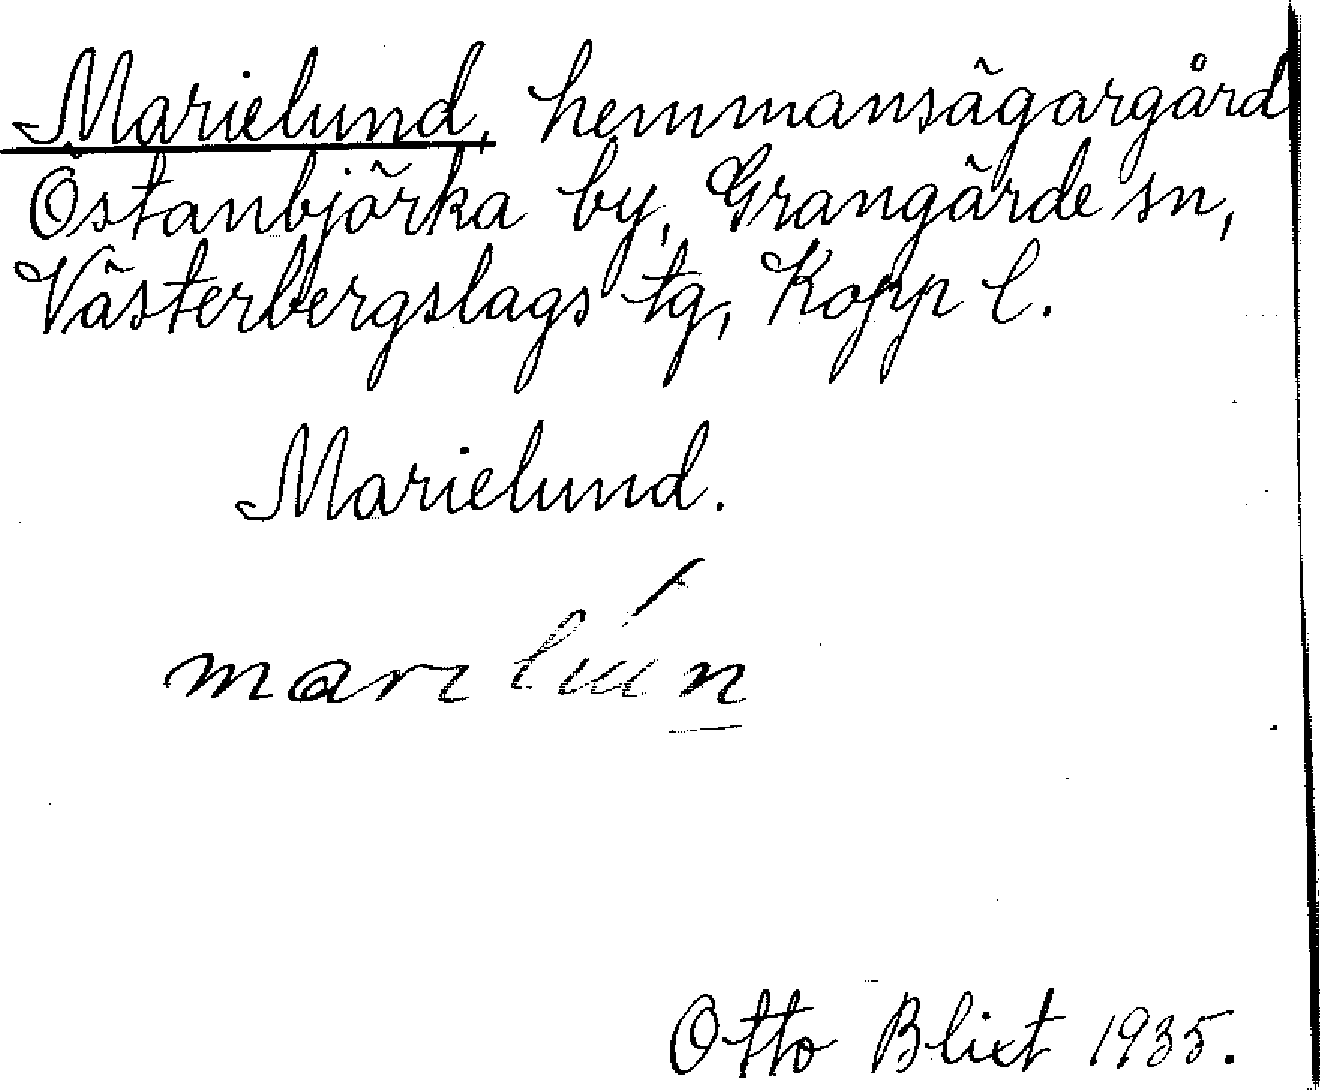 Marielund, hemmansägargård
Östanbjörka by, Grangärde sn,
Västerbergslags tg, Kopp l.
Marielund.
Otto Blixt 1935.